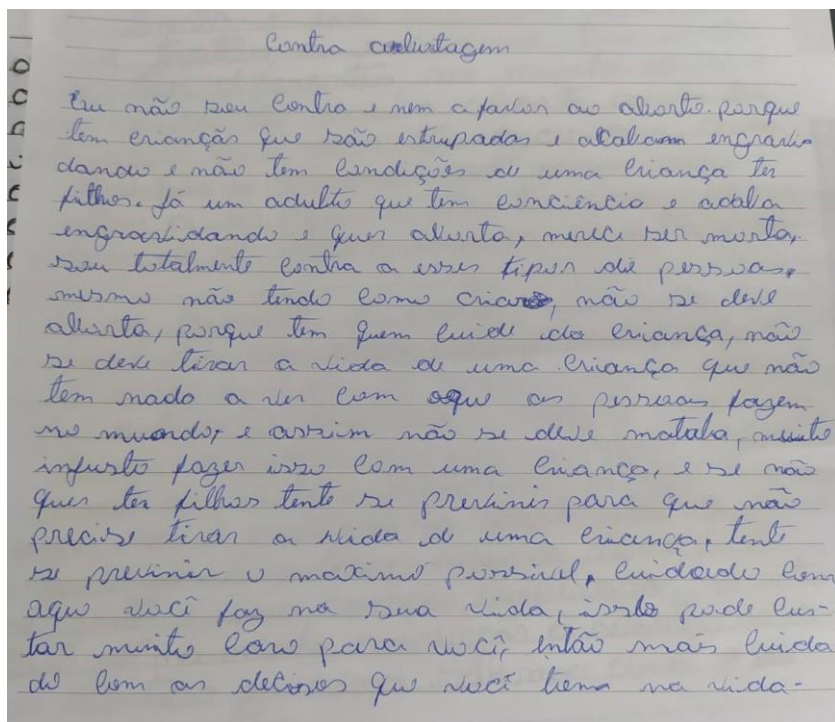 Contra
Eu não sou contra e nem a favor ao aborto. porque
tem criançãs que são estrupadas e acabam engravi
dando e não tem condições de uma criança ter
filhos. Já um adulto que tem conciência e acaba
engravidando e quer aborta, merece ser morta,
sou totalmente contra a esses tipos de pessoas,
mesmo não tendo como criar, não se deve
aborta, porque tem quem cuide da criança, não
se deve tirar a vida de uma criança que não
tem nada a ver com oque as pessoas fazem
no mundo, e assim não se deve matala, muito
injusto fazer isso com uma criança, e se não
quer ter filhos tente se previnir para que não
precise tirar a vida de uma criança, tente
se previnir o maximo possivel, cuidado com
aquo você faz na sua vida, issto pode cus-
tar muito caro para você, então mais cuida
do com as decisoes que você toma na vida-